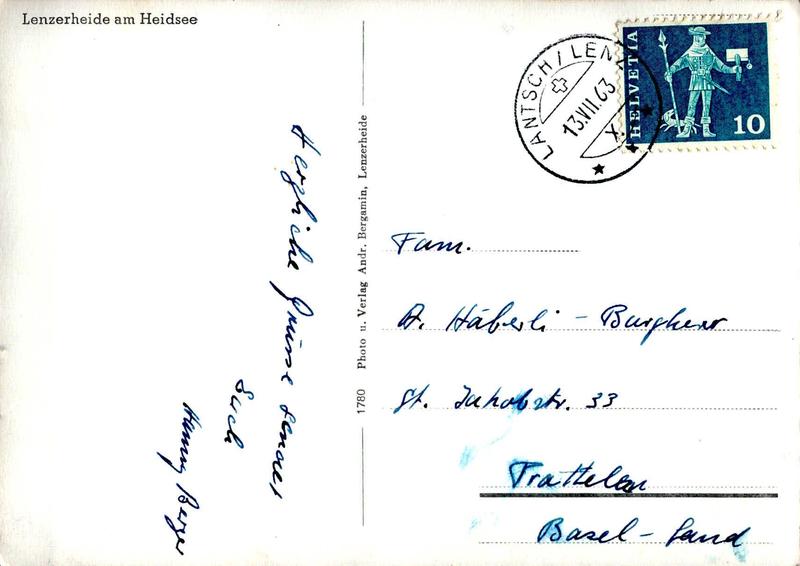 Lenzerheide am Heidsee
LANTSCH/LENZ
13.VII.63
X.
HELVETIA
10
Herzliche Grüsse sendet
Euch
Berger
1780 Photo u. Verlag Andr. Bergamin, Lenzerheide
Fam.
A. Häberli - Burgherr
St. Jakobstr. 33
Prattelen
Basel-Land